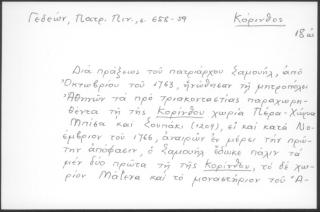 Γεδεών, Πατρ. Πιν., σ. 658-59
Κόρινθος
18 αἰ
Διὰ πράξεως τοῦ πατριάρχου Σαμουήλ, ἀπὸ
Ὀκτωβρίου τοῦ 1763, ἡνώθησαν τῇ μητροπόλει
Ἀθηνῶν τὰ πρὸ τριακονταετίας παραχωρη-
θέντα τῇ τῆς Κορίνθου χωρία Πέρα-Χώρα
Μπίσα καὶ (1209), εἰ καὶ κατὰ Νο-
έμβριον τοῦ 1766, ἀναιρῶν ἐν μέρει τὴν πρώ-
την ἀπόφασιν, ὁ Σαμουὴλ ἔδωκε πάλιν τὰ
μὲν δύο πρῶτα τῇ τῆς Κορίνθου, τὸ δὲ χω-
ρίον καὶ τὸ μοναστήριον τοῦ Ἁ-